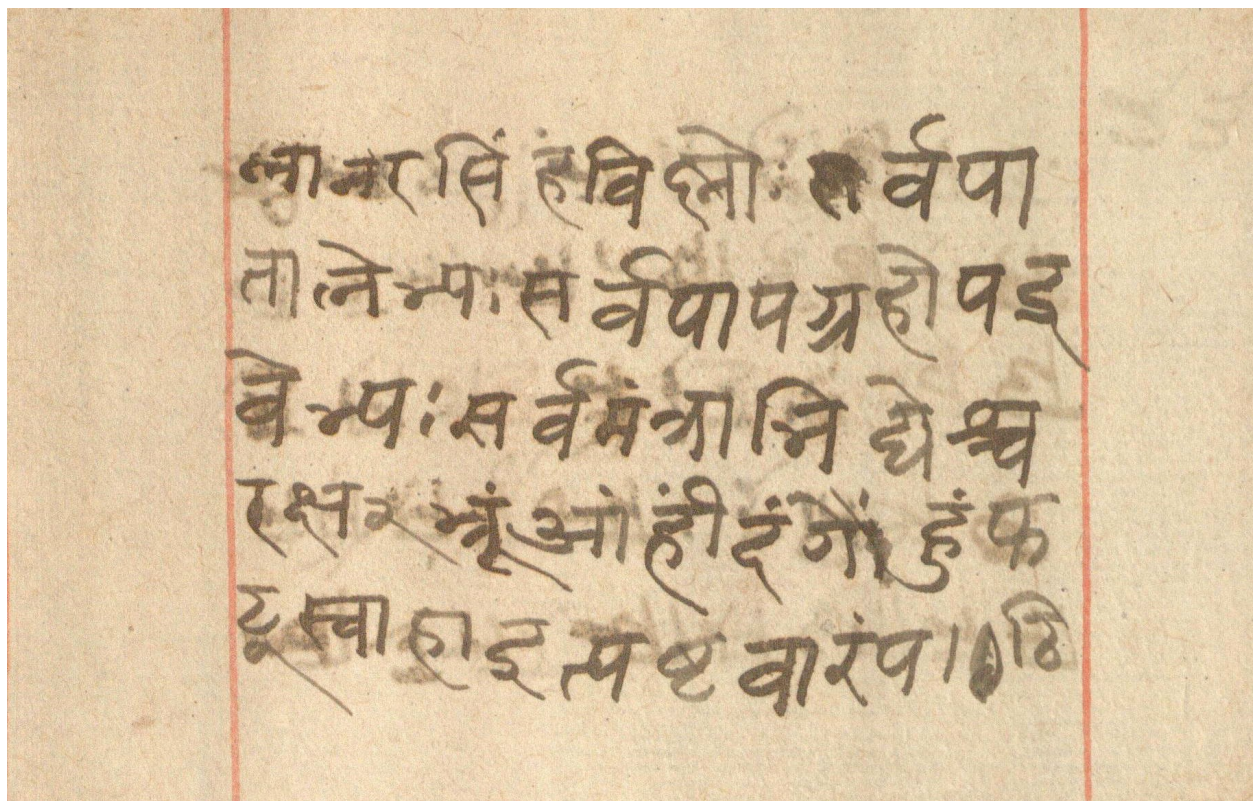 ला नर सिंहविष्णोः सर्वपा
तालेभ्यः सर्वपापग्रहोपद्र
वेभ्यः सर्वमंत्रा श्च
रक्ष२ ह्रीं हुं फ
ट् स्वाहा इत्यष्टवारं प।